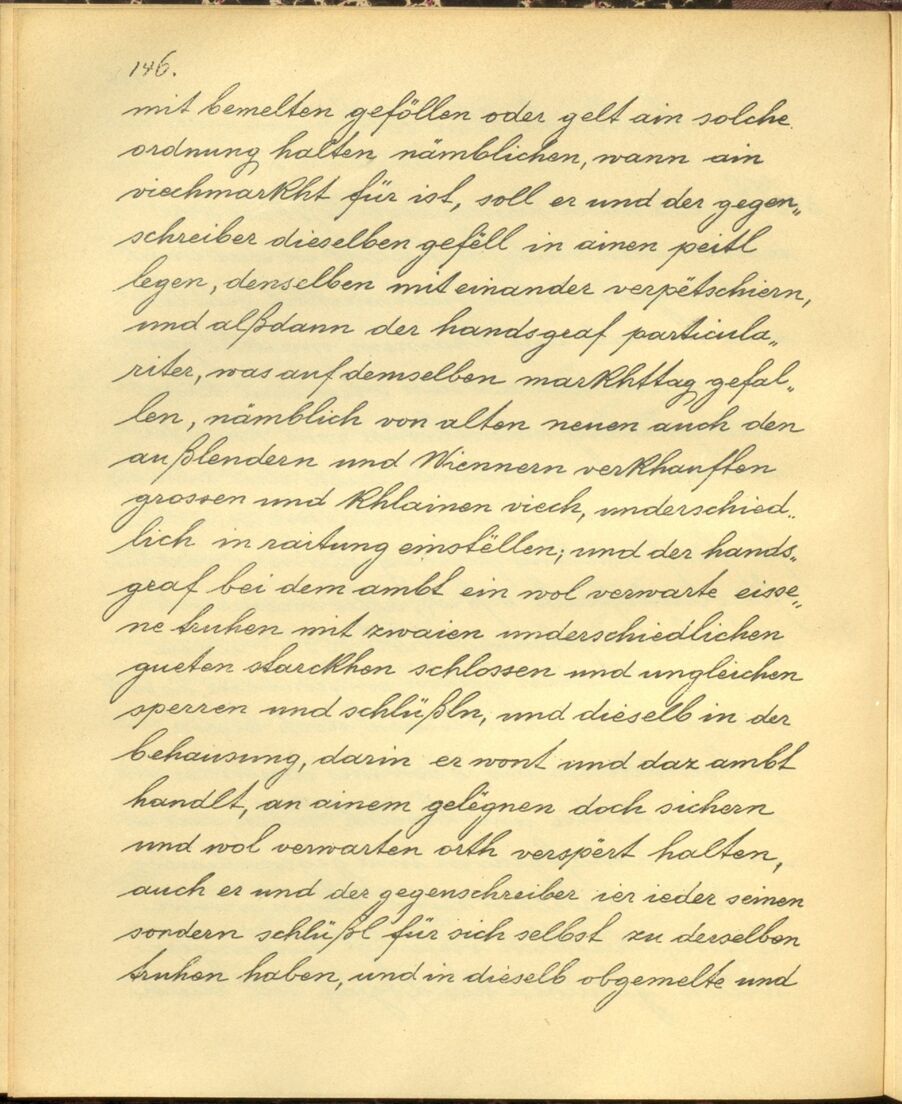 146.
mit bemelten geföllen oder gelt ain solche
ordnung halten nämblichen, wann ain
viechmarkht für ist, soll er und der gegen„
schreiber dieselben gefëll in ainen peitl
legen, denselben miteinander verpëtschiern,
und alßdann der handsgraf particula„
riter, was auf demselben markhttag gefal„
len, nämblich von alten neuen auch den
außlendern und Wiennern verkhauften
grossen und khlainen viech, underschied„
lich in raitung einstëllen; und der hands„
graf bei dem ambt ein wol verwarte eisse„
ne truhen mit zwaien underschiedlichen
gueten starckhen schlossen und ungleichen
sperren und schlüßln, und dieselb in der
behausung, darin er wont und daz ambt
handlt, an ainem gelëgnen doch sichern
und wol verwarten orth verspërt halten,
auch er und der gegenschreiber ier ieder seinen
sondern schlüßl für sich selbst zu derselben
truhen haben, und in dieselb obgemelte und